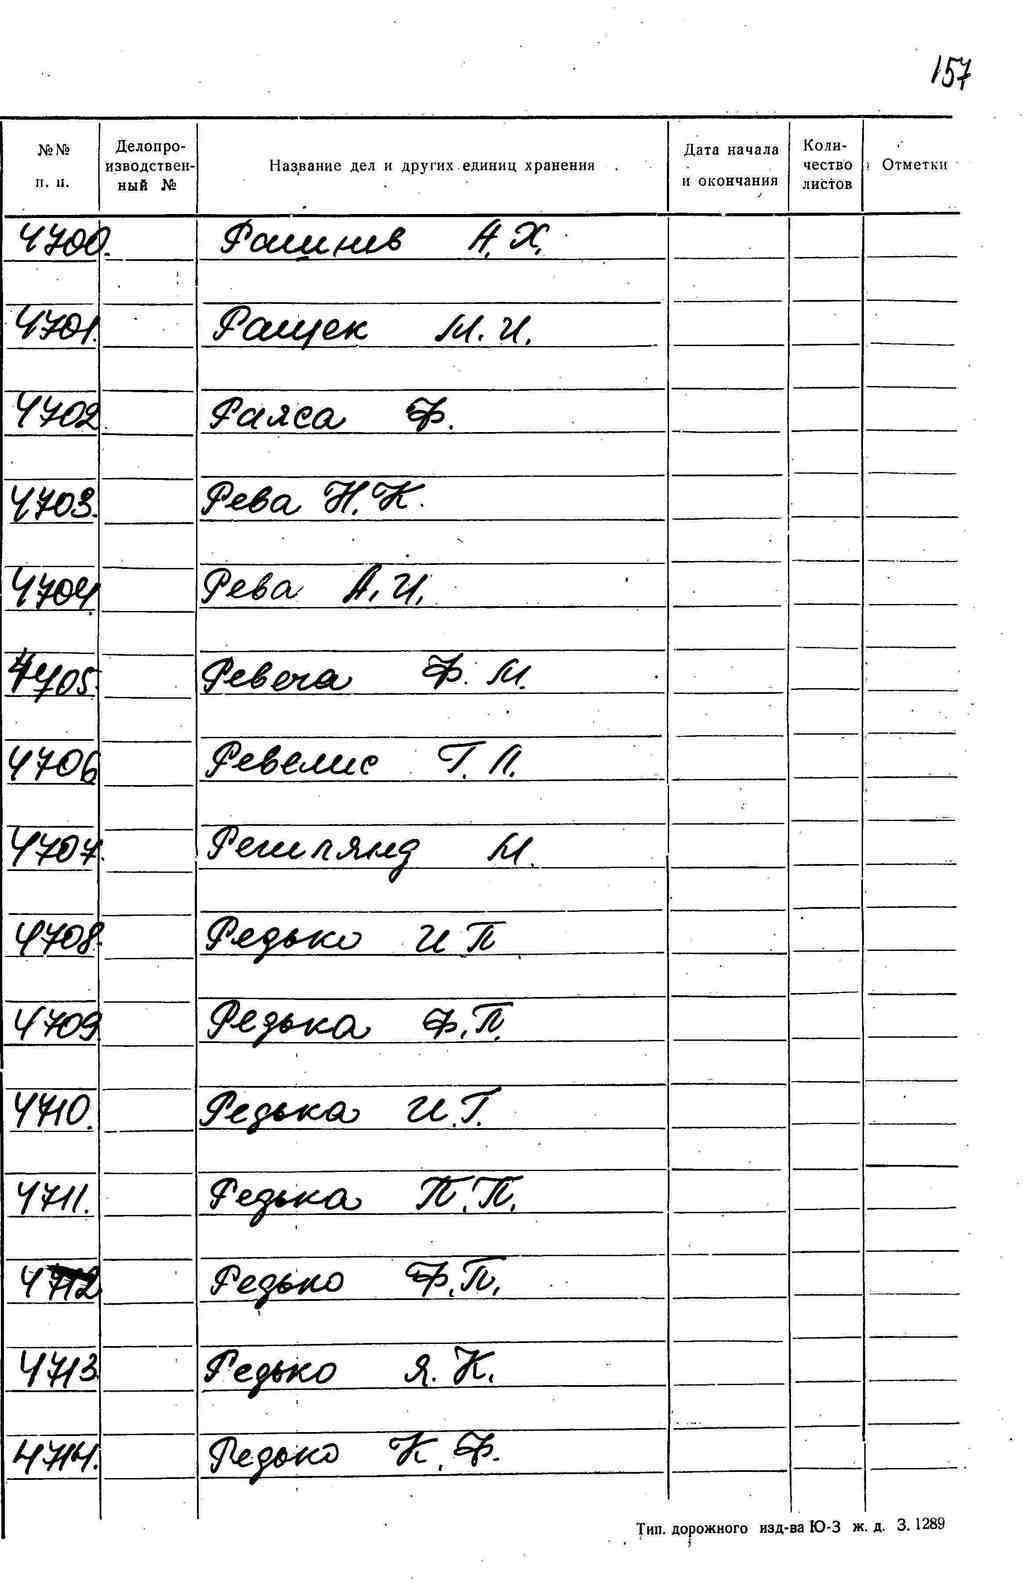 157
№№ п. п. Делопроизводственный № Название дел и других единиц хранения Дата начала и окончания Количество листов Отметки
4700. Рашнив А. Х.
4701. Ращек М. И.
4702 Раяса Ф.
4703. Рева Н. К.
4704. Рева А. И.
4705. Ревега Ф. М.
4706 Ревелис Г. П.
4707. М.
4708. Редько И П
4709. Редька Ф. П.
4710. Редька И. Г.
4711. Редька П. П.
4712 Редько Ф. П.
4713 Редько Я. К.
4714. Редько К. Ф.
Тип. дорожного изд-ва Ю-З ж. д. З. 1289